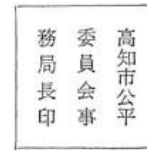 高知市公平
委員会事
務局長印